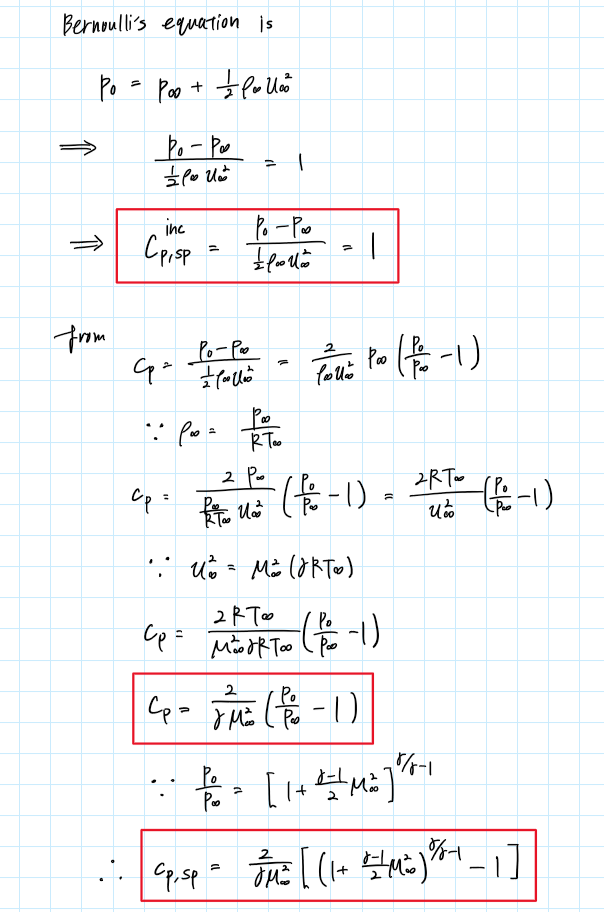 Bernoulli's equation is
p₀ = p∞ + ½ ρ∞ u∞²
⟹ (p₀ − p∞) / (½ ρ∞ u∞²) = 1
⟹ C_{p,sp}^{inc} = (p₀ − p∞) / (½ ρ∞ u∞²) = 1
from
Cp = (p₀ − p∞) / (½ ρ∞ u∞²) = 2 / (ρ∞ u∞²) p∞ (p₀/p∞ − 1)
∵ ρ∞ = p∞ / (RT∞)
Cp = 2 p∞ / ((p∞/RT∞) u∞²) (p₀/p∞ − 1) = 2RT∞ / u∞² (p₀/p∞ − 1)
∵ u∞² = M∞² (γRT∞)
Cp = 2RT∞ / (M∞² γRT∞) (p₀/p∞ − 1)
Cp = 2 / (γM∞²) (p₀/p∞ − 1)
∵ p₀/p∞ = [1 + (γ−1)/2 M∞²]^{γ/γ−1}
∴ C_{p,sp} = 2 / (γM∞²) [(1 + (γ−1)/2 M∞²)^{γ/γ−1} − 1]